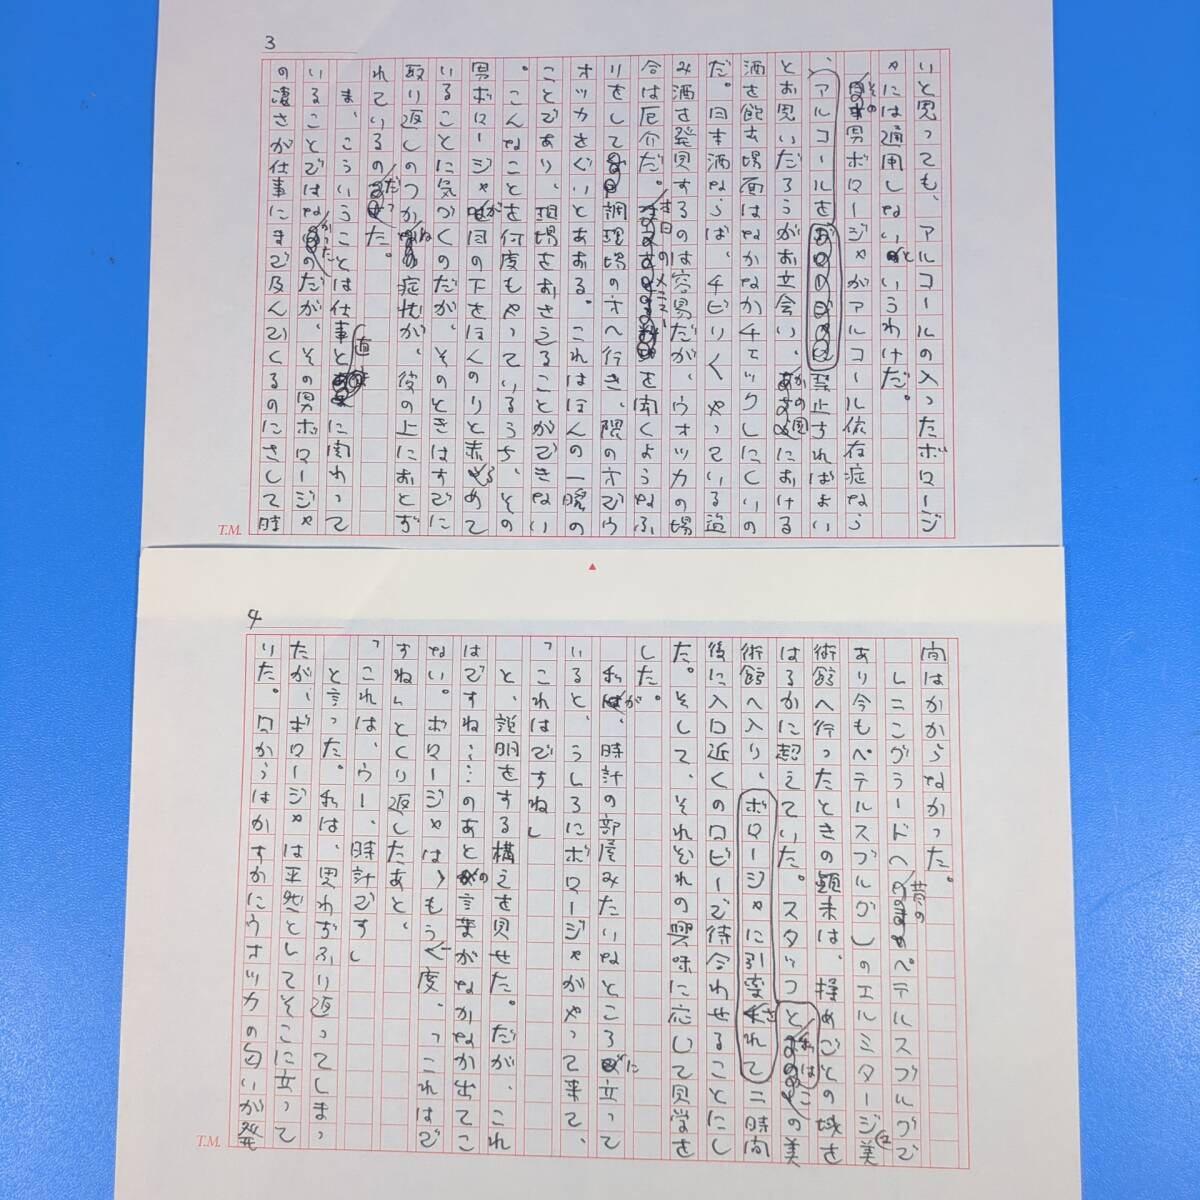 3
いと思っても、アルコールの入ったボロージ
ャには通用しないというわけだ。
その男ボロージャがアルコール依存症なら
、アルコールを禁止すればよい
とお思いだろうがお立会い、かの国における
酒を飲む場面はなかなかチェックしにくいの
だ。日本酒ならば、チビリ〱やっている盗
み酒を発見するのは容易だが、ウオッカの場
合は厄介だ。を聞くようなふ
りをして調理場の方へ行き、隅の方でウ
オッカをぐいとあおる。これはほんの一瞬の
ことであり、現場をおさえることができない
。こんなことを何度もやっているうち、その
男ボロージャが目の下をほんのりと赤くそめて
いることに気づくのだが、そのときはすでに
取り返しのつかぬ症状が、彼の上におとず
れているのだった。
ま、こういうことは仕事と直に関わって
いることではなかったのだが、その男ボロージャ
の凄さが仕事にまで及んでくるのにさして時
T.M.
4
間はかからなかった。
レニングラードへ昔のペテルスブルグで
あり今もペテルスブルグ)のエルミタージュ美
術館へ行ったときの顛末は、揉めごとの域を
はるかに超えていた。スタッフと私はこの美
術館へ入り、ボロージャに引率されて二時間
後に入口近くのロビーで待合わせることにし
た。そして、それぞれの興味に応じて見学を
した。
私が、時計の部屋みたいなところに立って
いると、うしろにボロージャがやって来て、
「これはですね」
と、説明をする構えを見せた。だが、これ
はですね……のあとの言葉がなかなか出てこ
ない。ボロージャは、もう一度、「これはで
すね」とくり返したあと、
「これは、ウー、時計です」
と言った。私は、思わずふり返ってしまっ
たが、ボロージャは平然としてそこに立って
りた。口からはかすかにウオッカの匂いが発
T.M.